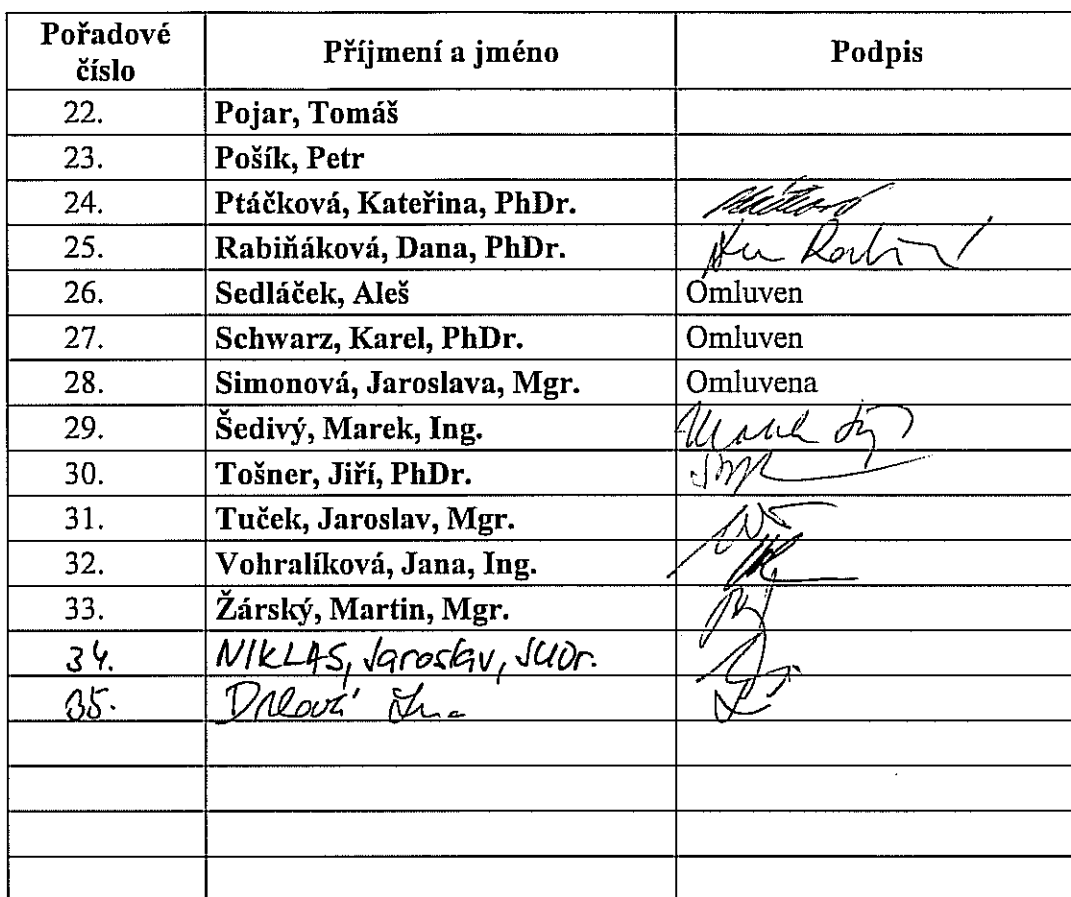 Pořadové číslo Příjmení a jméno Podpis
22. Pojar, Tomáš
23. Pošík, Petr
24. Ptáčková, Kateřina, PhDr.
25. Rabiňáková, Dana, PhDr.
26. Sedláček, Aleš Omluven
27. Schwarz, Karel, PhDr. Omluven
28. Simonová, Jaroslava, Mgr. Omluvena
29. Šedivý, Marek, Ing.
30. Tošner, Jiří, PhDr.
31. Tuček, Jaroslav, Mgr.
32. Vohralíková, Jana, Ing.
33. Žárský, Martin, Mgr.
34. NIKLAS, Jaroslav, JUDr.
35.